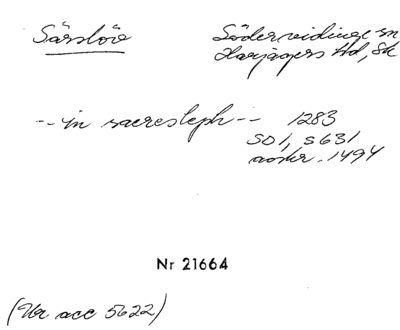 Särslöv Södervidinge sn
Harjagers hd, Sk
--in saeresleph-- 1283
SD 1, s 631
avskr. 1494
Nr 21664
(Ur acc 5622)